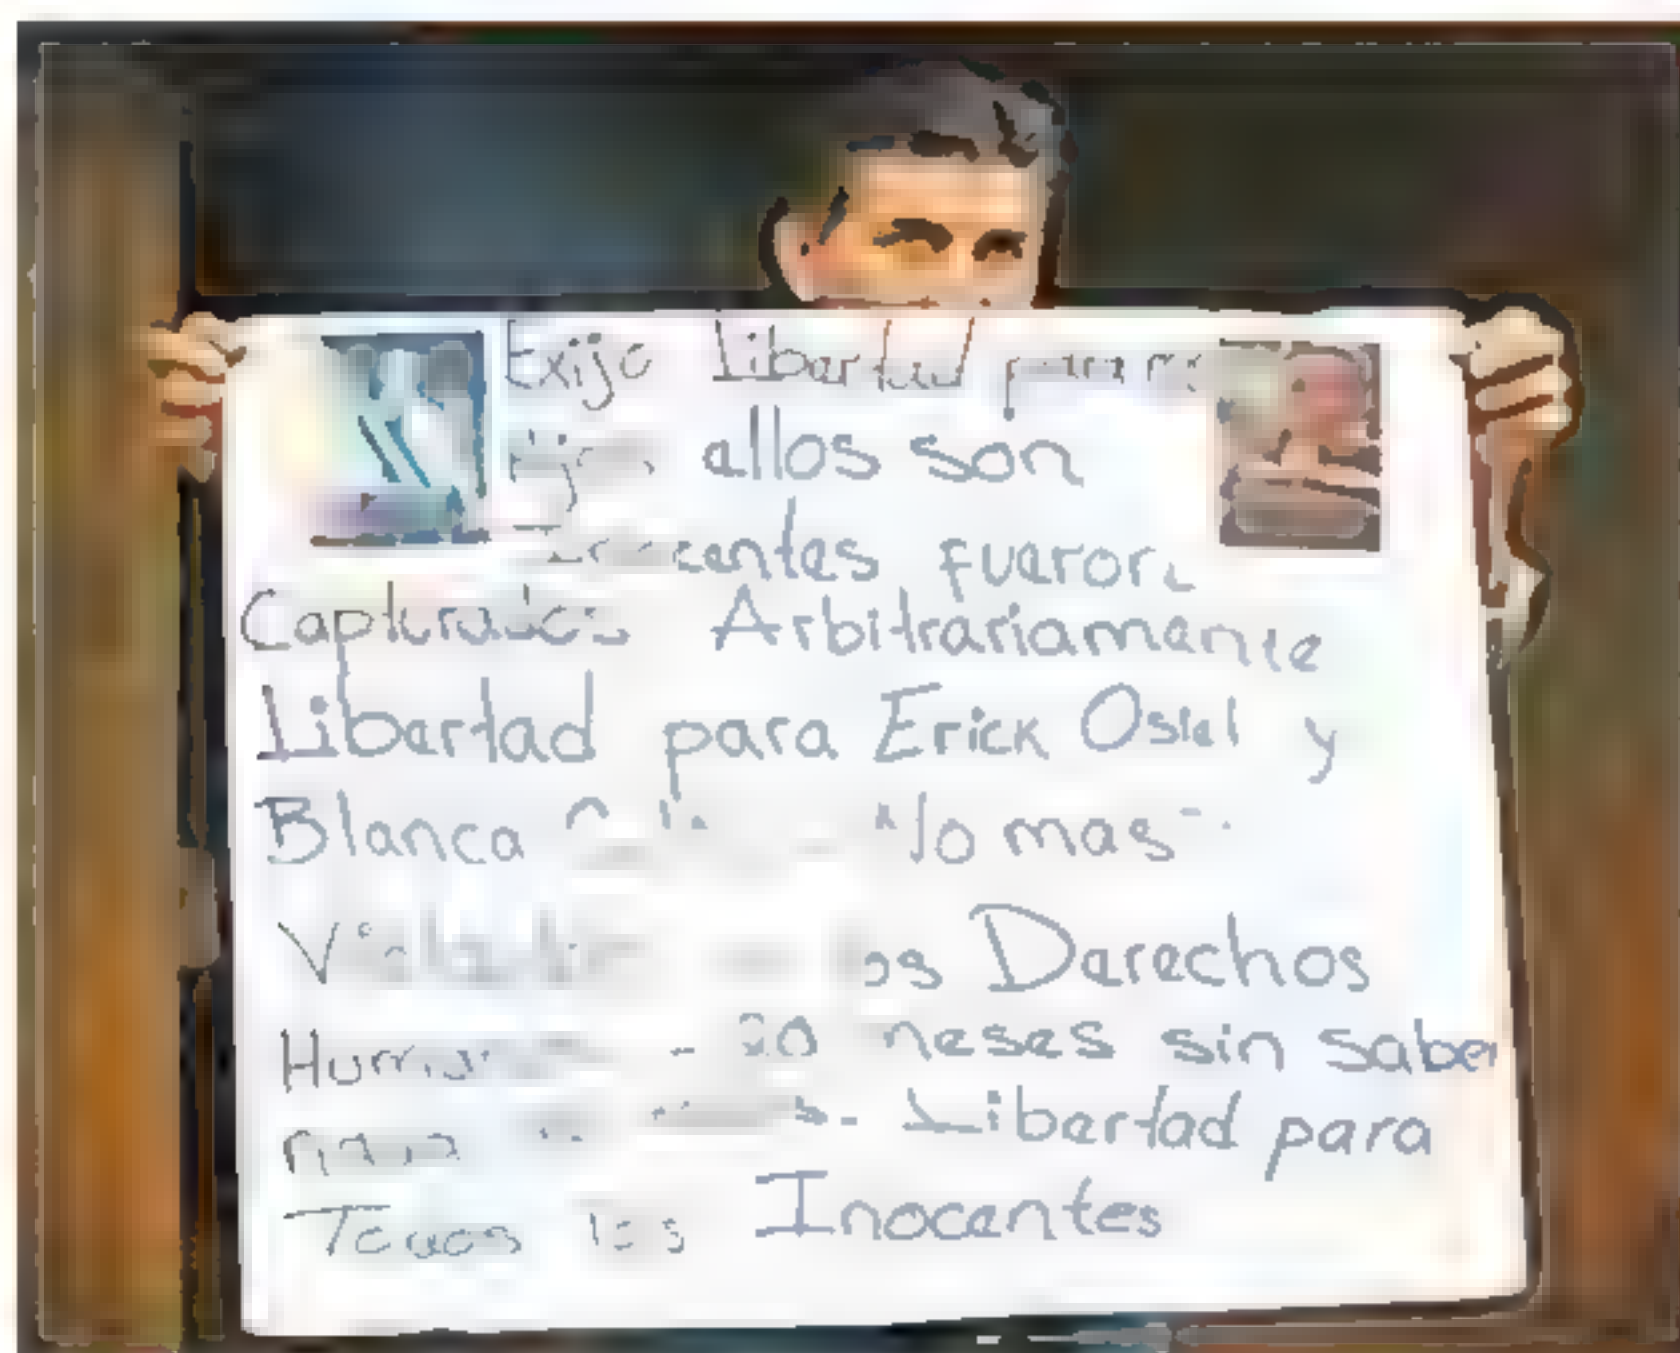 Exijo Libertad para mis
ellos son
Inocentes fueron
Capturados Arbitrariamente
Libertad para Erick Osiel y
Blanca No mas
los Derechos
Humanos 20 meses sin saber
Libertad para
Todos los Inocentes